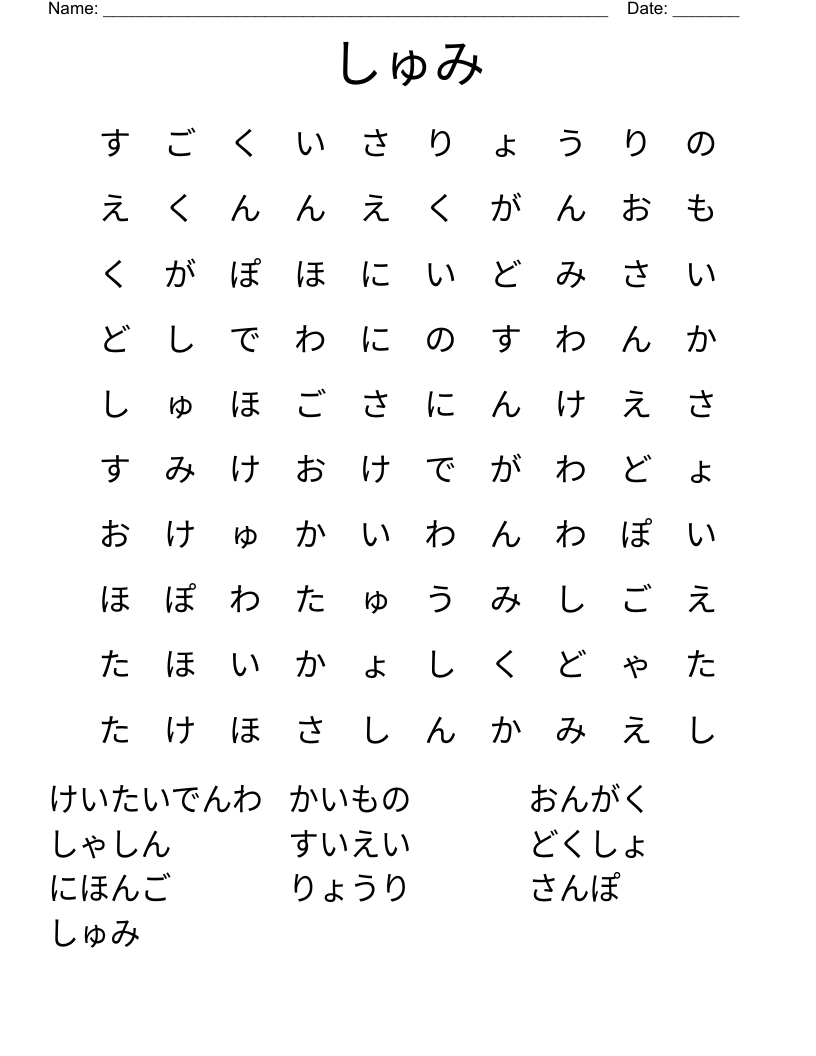 Name: _____________________________________________________ Date: _______
しゅみ
す ご く い さ り ょ う り の
え く ん ん え く が ん お も
く が ぽ ほ に い ど み さ い
ど し で わ に の す わ ん か
し ゅ ほ ご さ に ん け え さ
す み け お け で が わ ど ょ
お け ゅ か い わ ん わ ぽ い
ほ ぽ わ た ゅ う み し ご え
た ほ い か ょ し く ど ゃ た
た け ほ さ し ん か み え し
けいたいでんわ かいもの おんがく
しゃしん すいえい どくしょ
にほんご りょうり さんぽ
しゅみ